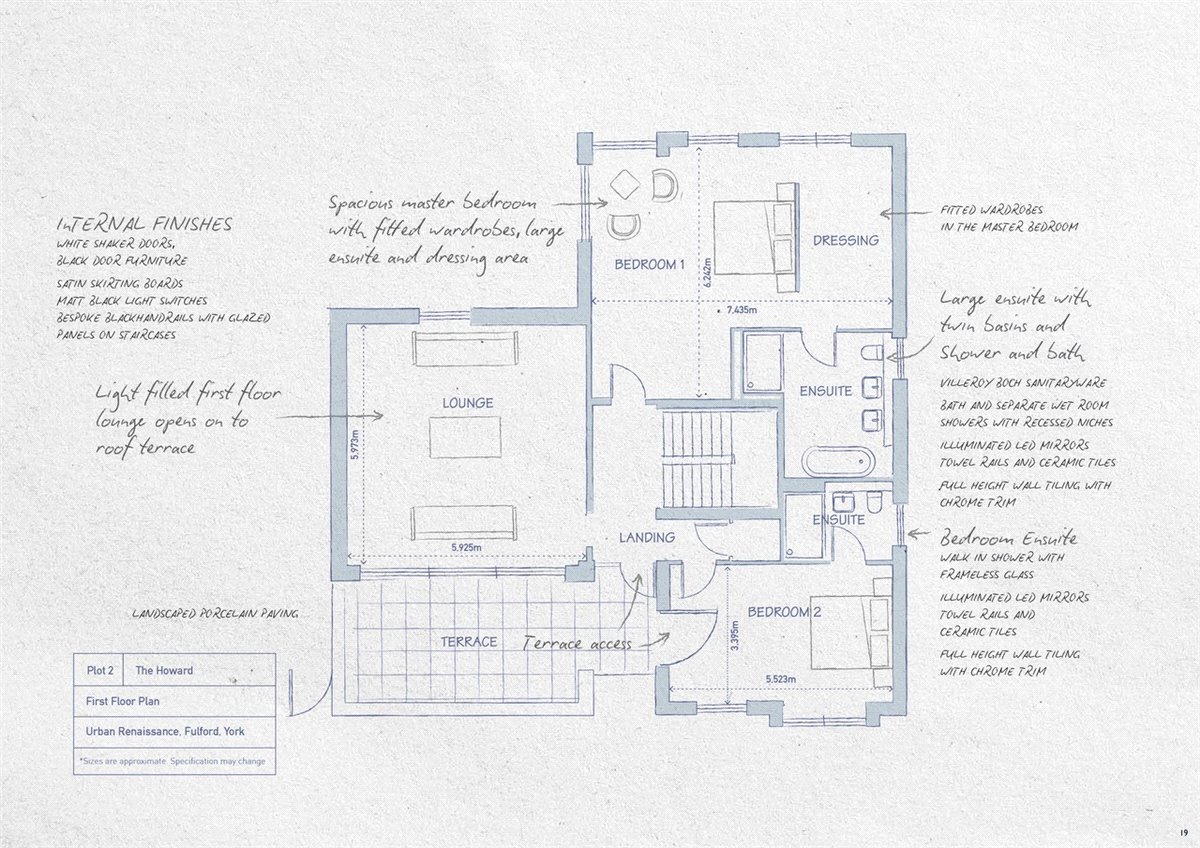 InTERNAL FINISHES
WHITE SHAKER DOORS,
BLACK DOOR FURNITURE
SATIN SKIRTING BOARDS
MATT BLACK LIGHT SWITCHES
BESPOKE BLACKHANDRAILS WITH GLAZED
PANELS ON STAIRCASES
Spacious master bedroom
with fitted wardrobes, large
ensuite and dressing area
Light filled first floor
lounge opens on to
roof terrace
BEDROOM 1
6.242m
7.435m
DRESSING
FITTED WARDROBES
IN THE MASTER BEDROOM
Large ensuite with
twin basins and
Shower and bath
VILLEROY BOCH SANITARYWARE
BATH AND SEPARATE WET ROOM
SHOWERS WITH RECESSED NICHES
ILLUMINATED LED MIRRORS
TOWEL RAILS AND CERAMIC TILES
FULL HEIGHT WALL TILING WITH
CHROME TRIM
ENSUITE
LOUNGE
5.973m
5.925m
LANDING
ENSUITE
Bedroom Ensuite
WALK IN SHOWER WITH
FRAMELESS GLASS
ILLUMINATED LED MIRRORS
TOWEL RAILS AND
CERAMIC TILES
FULL HEIGHT WALL TILING
WITH CHROME TRIM
BEDROOM 2
3.395m
5.523m
LANDSCAPED PORCELAIN PAVING
TERRACE
Terrace access
Plot 2 The Howard
First Floor Plan
Urban Renaissance, Fulford, York
*Sizes are approximate. Specification may change
19